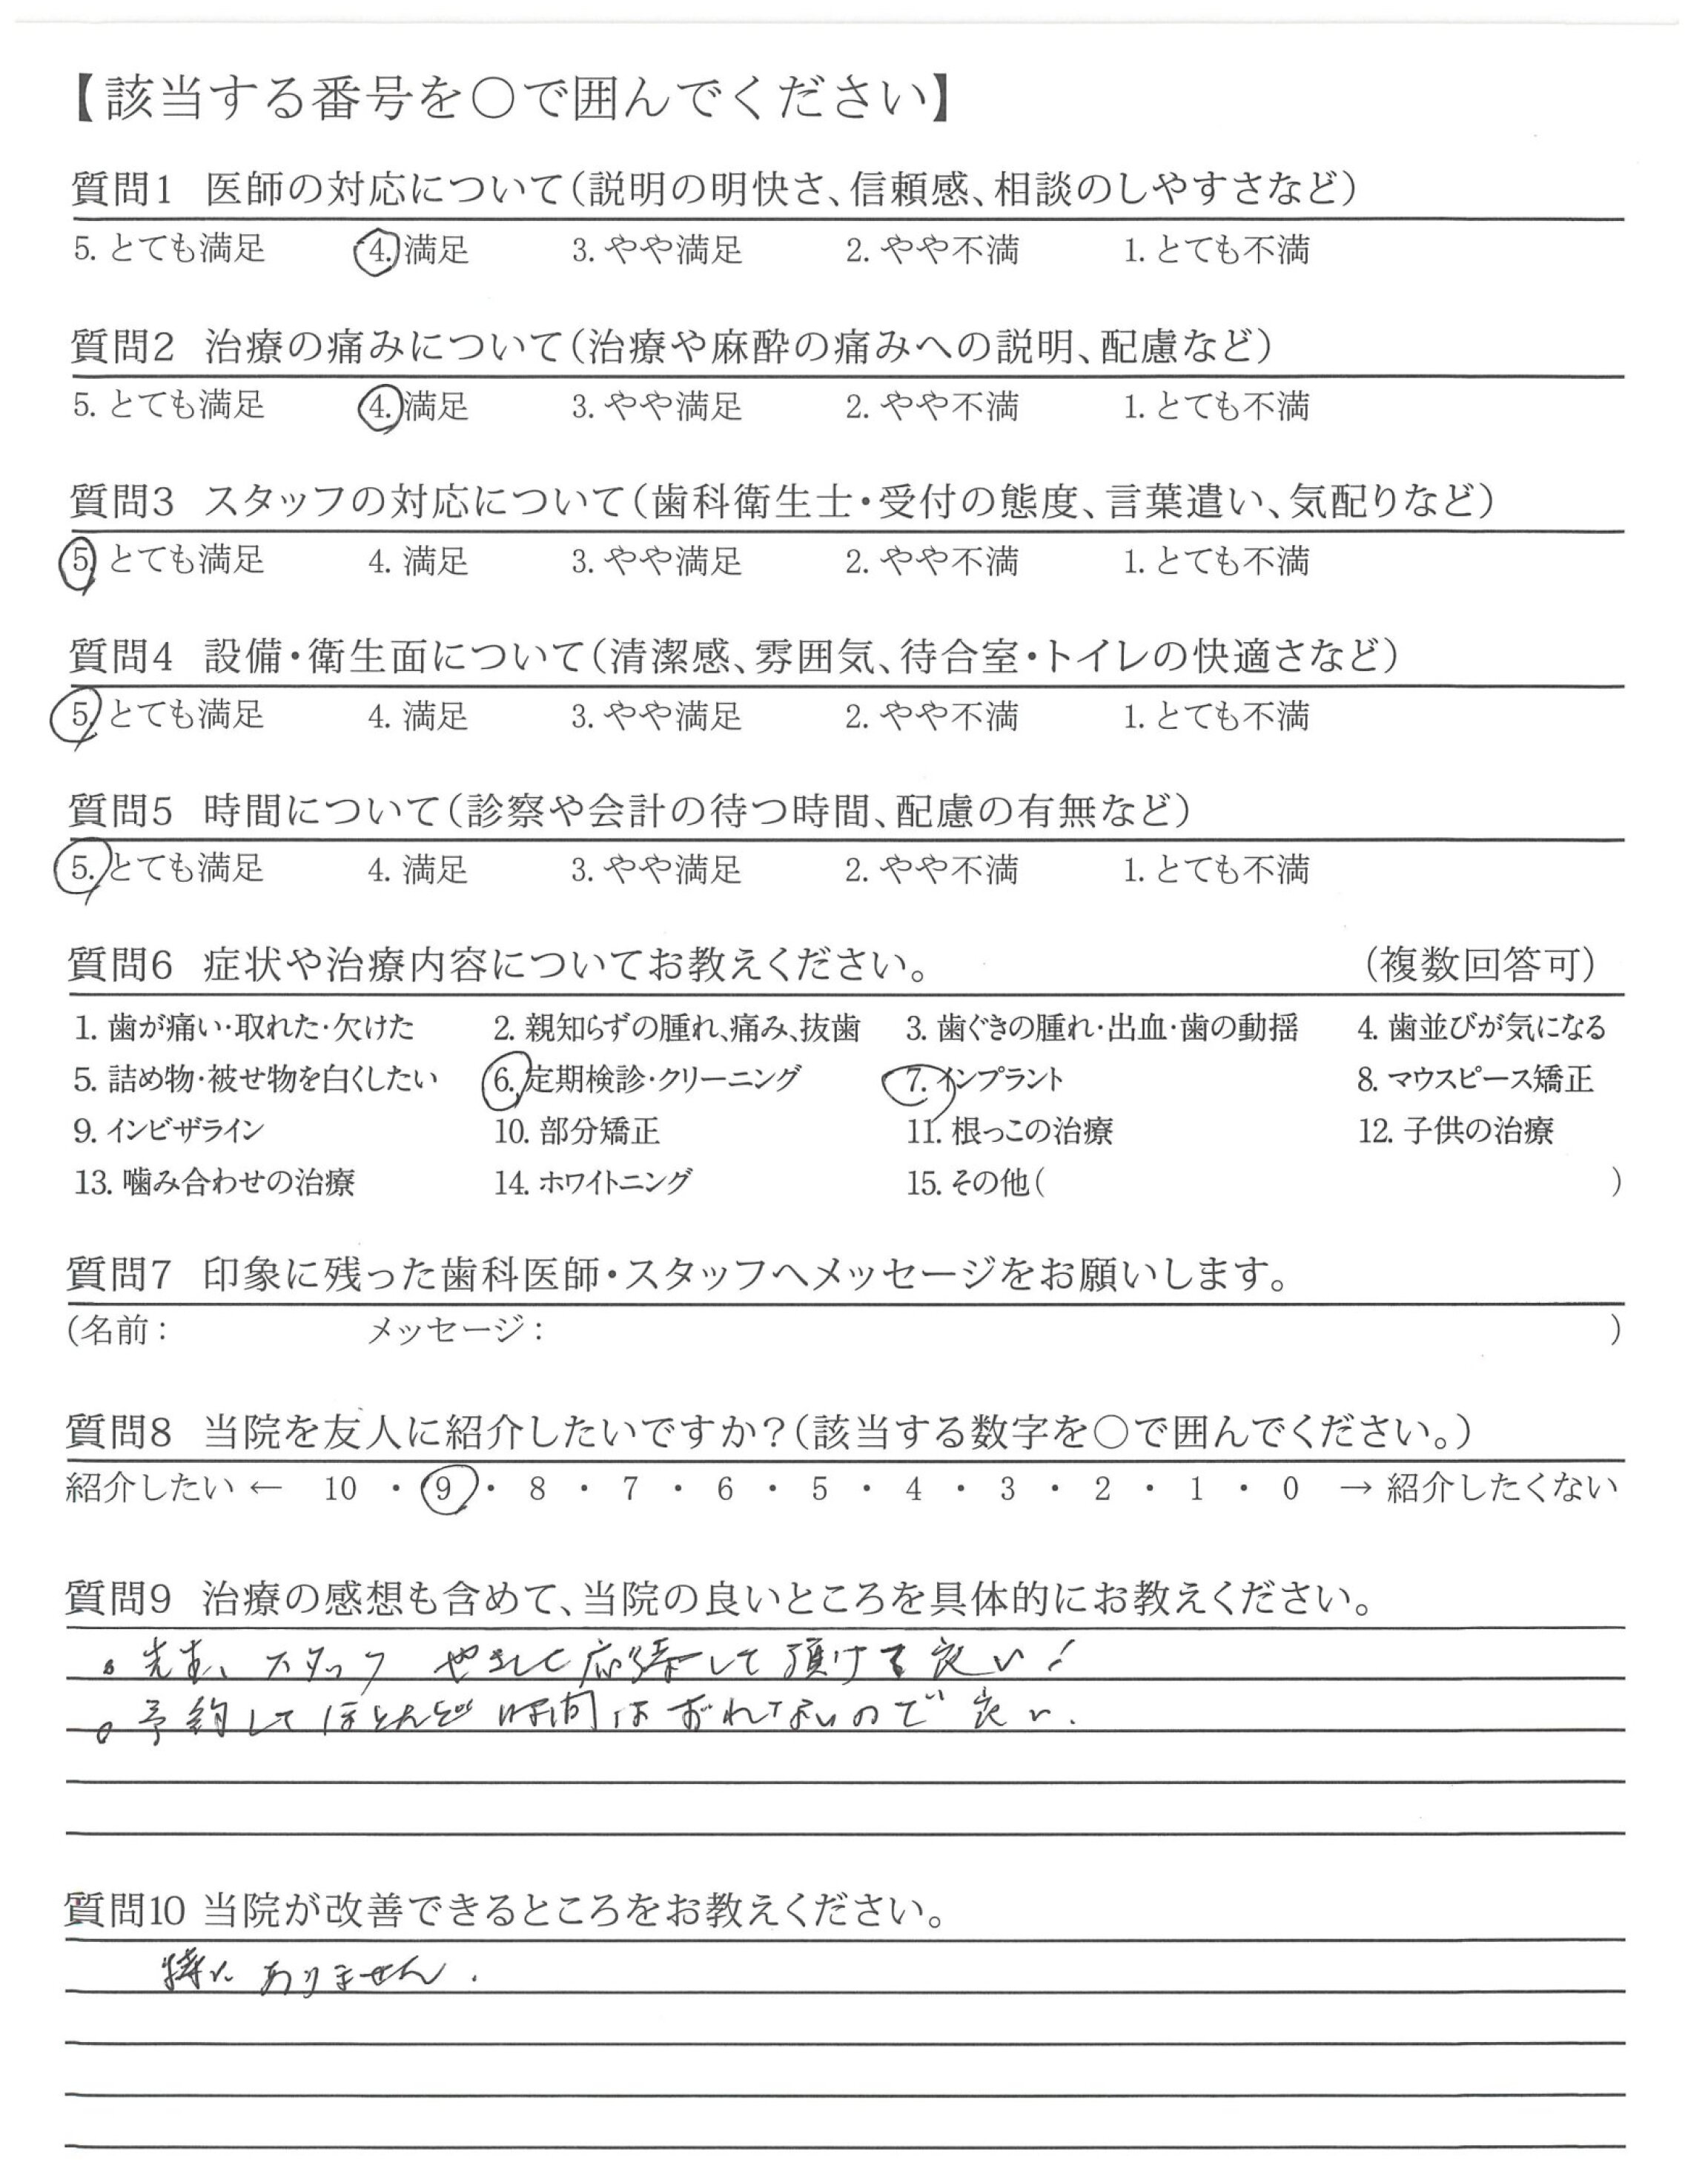 【該当する番号を○で囲んでください】
質問1 医師の対応について(説明の明快さ、信頼感、相談のしやすさなど)
5. とても満足 4. 満足 3. やや満足 2. やや不満 1. とても不満
質問2 治療の痛みについて(治療や麻酔の痛みへの説明、配慮など)
5. とても満足 4. 満足 3. やや満足 2. やや不満 1. とても不満
質問3 スタッフの対応について(歯科衛生士・受付の態度、言葉遣い、気配りなど)
5. とても満足 4. 満足 3. やや満足 2. やや不満 1. とても不満
質問4 設備・衛生面について(清潔感、雰囲気、待合室・トイレの快適さなど)
5. とても満足 4. 満足 3. やや満足 2. やや不満 1. とても不満
質問5 時間について(診察や会計の待つ時間、配慮の有無など)
5. とても満足 4. 満足 3. やや満足 2. やや不満 1. とても不満
質問6 症状や治療内容についてお教えください。 (複数回答可)
1. 歯が痛い・取れた・欠けた 2. 親知らずの腫れ、痛み、抜歯 3. 歯ぐきの腫れ・出血・歯の動揺 4. 歯並びが気になる
5. 詰め物・被せ物を白くしたい 6. 定期検診・クリーニング 7. インプラント 8. マウスピース矯正
9. インビザライン 10. 部分矯正 11. 根っこの治療 12. 子供の治療
13. 噛み合わせの治療 14. ホワイトニング 15. その他( )
質問7 印象に残った歯科医師・スタッフへメッセージをお願いします。
(名前: メッセージ: )
質問8 当院を友人に紹介したいですか?(該当する数字を○で囲んでください。)
紹介したい ← 10 ・ 9 ・ 8 ・ 7 ・ 6 ・ 5 ・ 4 ・ 3 ・ 2 ・ 1 ・ 0 → 紹介したくない
質問9 治療の感想も含めて、当院の良いところを具体的にお教えください。
。先生、スタッフ やさしく応待して頂けて良い!
。予約してほとんど時間はずれないので良い.
質問10 当院が改善できるところをお教えください。
特に ありません.